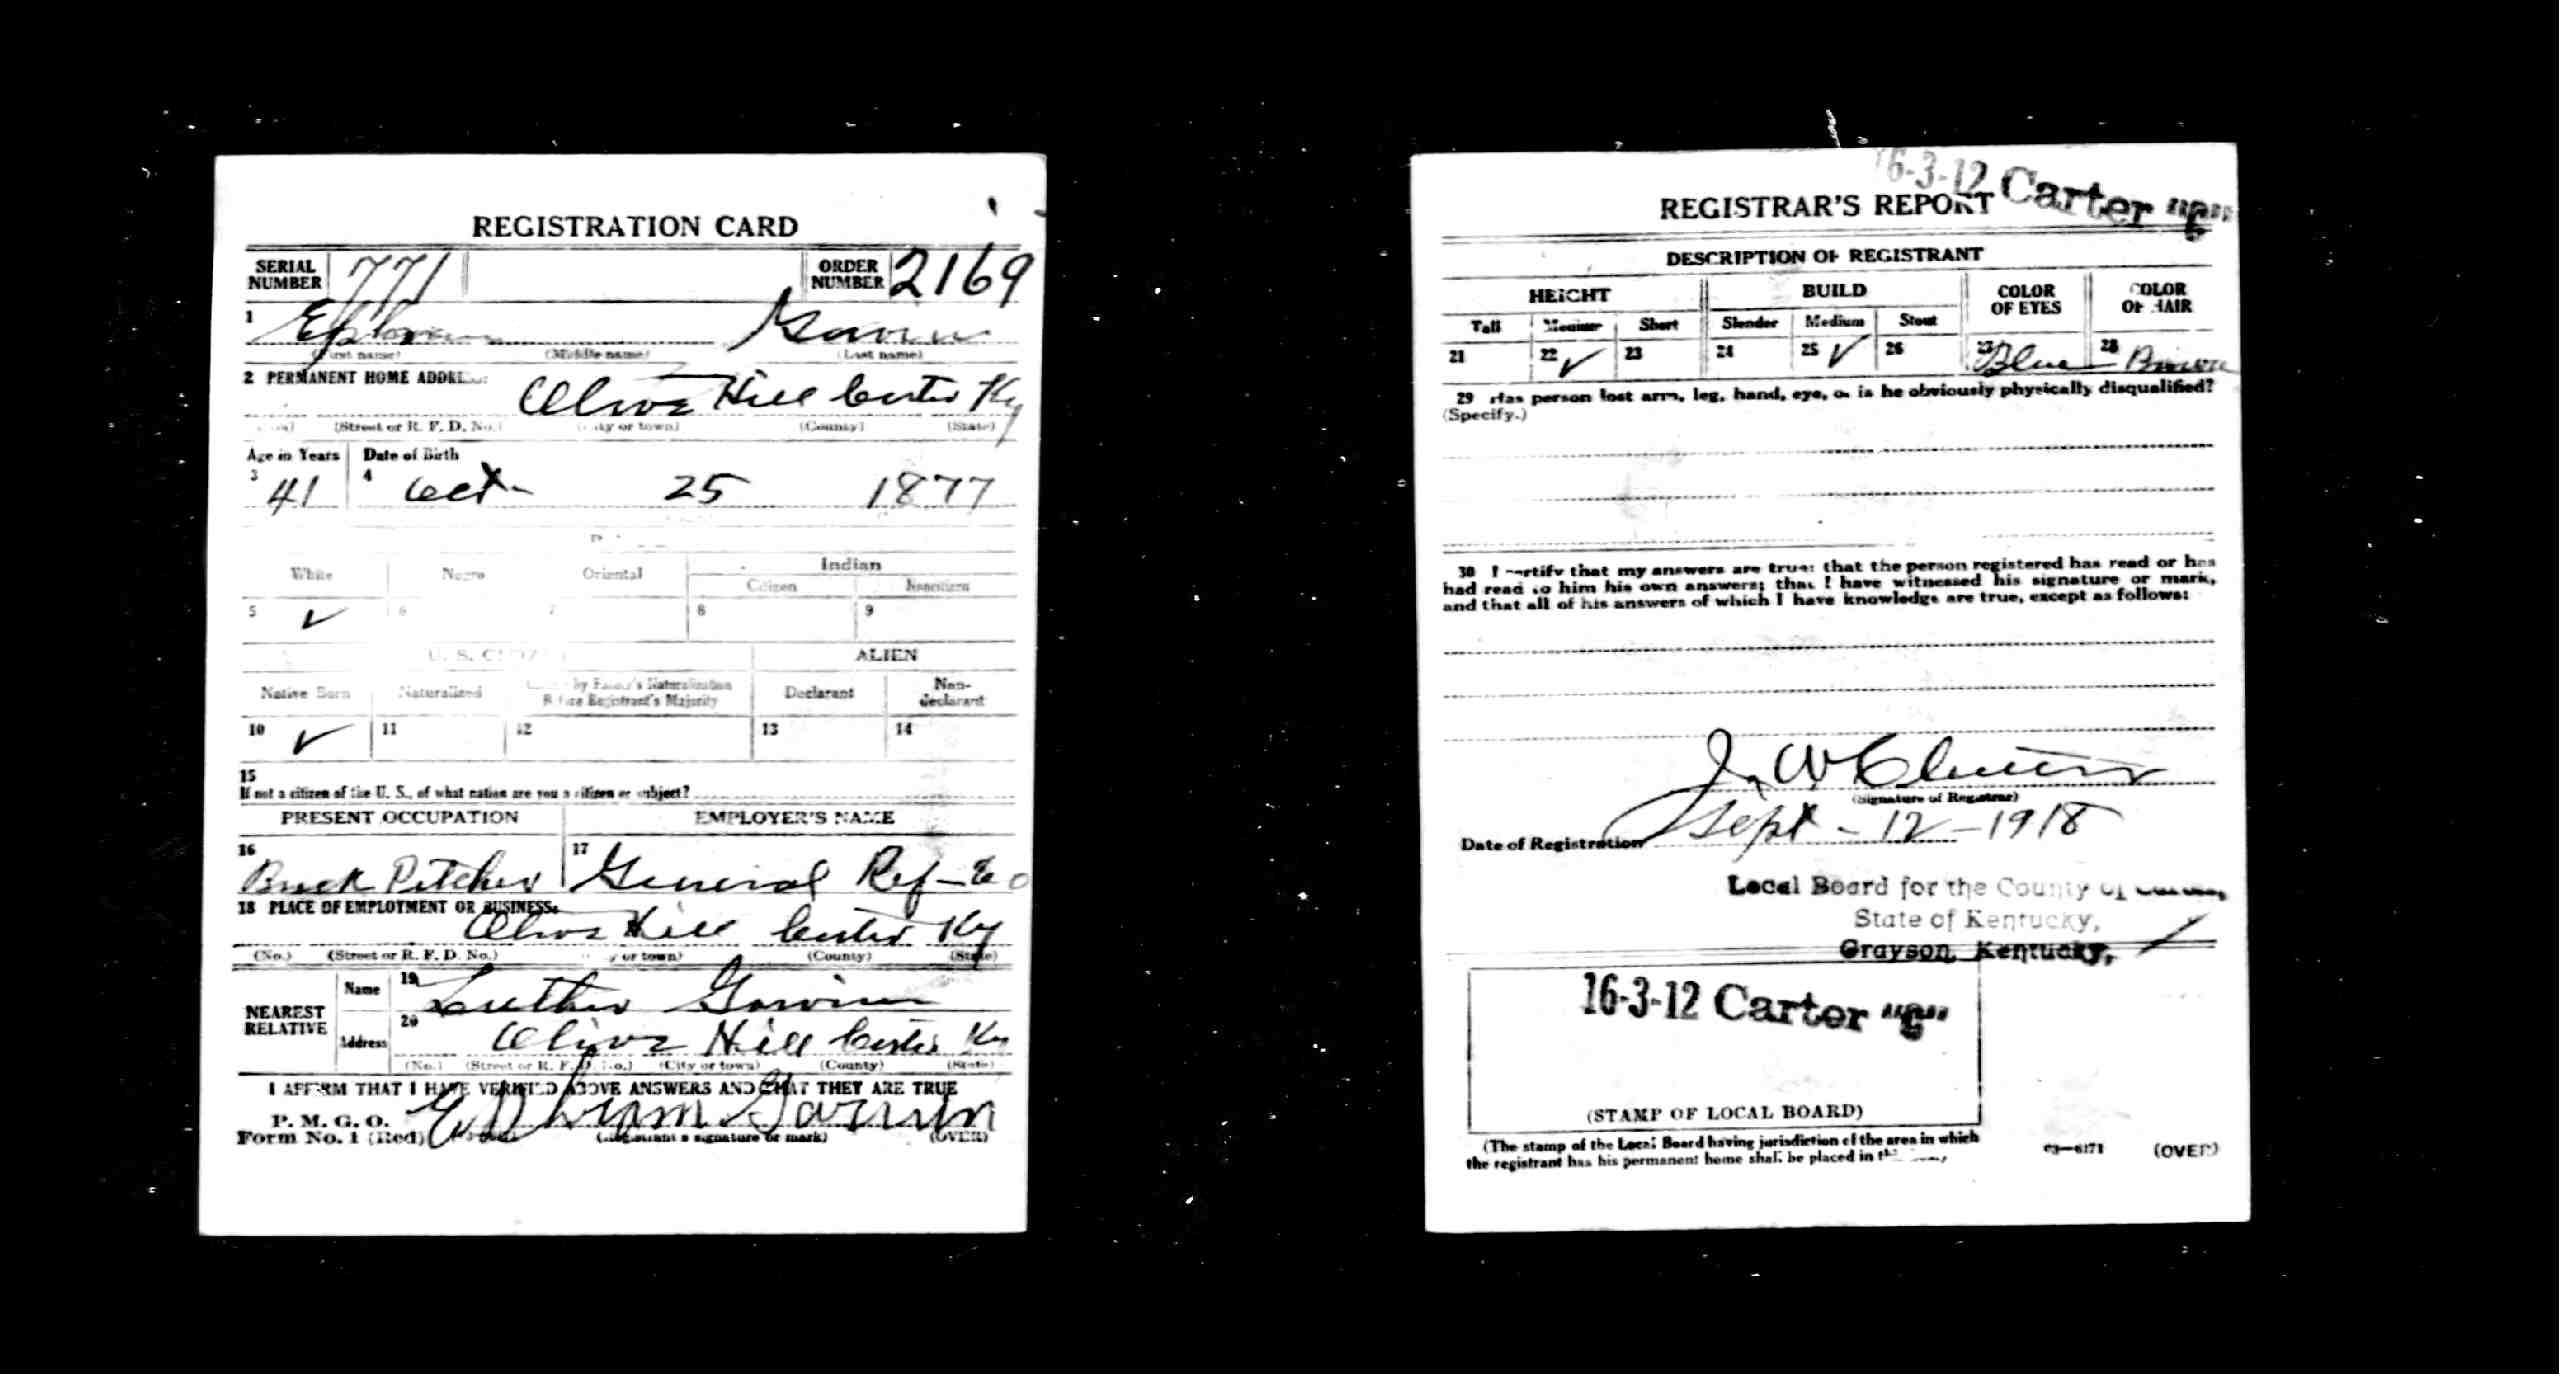 REGISTRATION CARD
SERIAL NUMBER 771 ORDER NUMBER 2169
1 Ephram
(First name) (Middle name) (Last name)
2 PERMANENT HOME ADDRESS:
Olive Hill Carter Ky
(No.) (Street or R. F. D. No.) (City or town) (County) (State)
Age in Years Date of Birth
3 41 4 Oct- 25 1877
White Negro Oriental Indian
Citizen Noncitizen
5 ✓ 6 7 8 9
U. S. CITIZEN ALIEN
Native Born Naturalized by Father's Naturalization Before Registrant's Majority Declarant Non-declarant
10 ✓ 11 12 13 14
15
If not a citizen of the U. S., of what nation are you a citizen or subject?
PRESENT OCCUPATION EMPLOYER'S NAME
16 17
Brick Pitcher General Ref-Co
18 PLACE OF EMPLOYMENT OR BUSINESS:
Olive Hill Carter Ky
(No.) (Street or R. F. D. No.) (City or town) (County) (State)
NEAREST RELATIVE
Name 19 Luther
Address 20 Olive Hill Carter Ky
(No.) (Street or R. F. D. No.) (City or town) (County) (State)
I AFFIRM THAT I HAVE VERIFIED ABOVE ANSWERS AND THAT THEY ARE TRUE
P. M. G. O.
Form No. 1 (Red) (Registrant's signature or mark) (OVER)
16-3-12 Carter "C"
REGISTRAR'S REPORT
DESCRIPTION OF REGISTRANT
HEIGHT BUILD COLOR OF EYES COLOR OF HAIR
Tall Medium Short Slender Medium Stout
21 22 ✓ 23 24 25 ✓ 26 27 Blue 28 Brown
29 Has person lost arm, leg, hand, eye, or is he obviously physically disqualified?
(Specify.)
30 I certify that my answers are true; that the person registered has read or has
had read to him his own answers; that I have witnessed his signature or mark,
and that all of his answers of which I have knowledge are true, except as follows:
J. W.
(Signature of Registrar)
Date of Registration Sept - 12 - 1918
Local Board for the County of Carter,
State of Kentucky,
Grayson, Kentucky,
16-3-12 Carter "C"
(STAMP OF LOCAL BOARD)
(The stamp of the Local Board having jurisdiction of the area in which
the registrant has his permanent home shall be placed in
03—6171 (OVER)